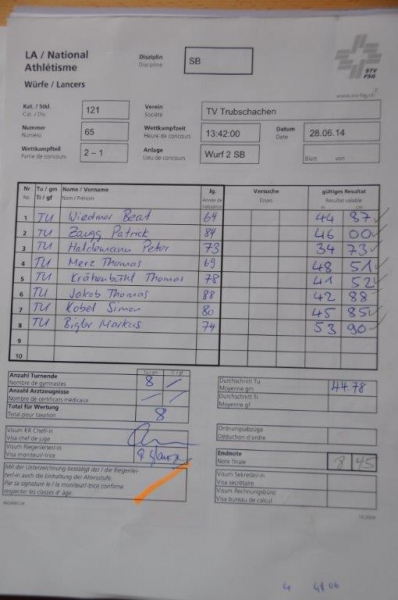 LA / National
Athlétisme
Würfe / Lancers
Disziplin
Discipline
SB
STV
FSG
Kat. / Stkl.
Cat. / Div.
121
Verein
Société
TV Trubschachen
Nummer
Numéro
65
Wettkampfzeit
Heure de concours
13:42:00
Datum
Date
28.06.14
Wettkampfteil
Partie de concours
2 – 1
Anlage
Lieu de concours
Wurf 2 SB
Blatt von
Nr Tu / gm Name / Vorname Jg. Versuche gültiges Resultat
No. Ti / gf Nom / Prénom Année de naissance Essais Résultat valable
m cm
1 TU Wiedmer Beat 64 44 87
2 TU Zaugg Patrick 84 46 00
3 TU Haldemann Peter 73 34 73
4 TU Merz Thomas 69 48 51
5 TU Krähenbühl Thomas 78 41 52
6 TU Jakob Thomas 88 42 88
7 TU Kobel Simon 80 45 85
8 TU Bigler Markus 74 53 90
9
10
Anzahl Turnende
Nombre de gymnastes 8
Anzahl Arztzeugnisse
Nombre de certificats médicaux
Total für Wertung
Total pour taxation 8
Durchschnitt Tu
Moyenne gm 44.78
Durchschnitt Ti
Moyenne gf
Visum KR Chef/-in
Visa chef de juge
Visum Riegenleiter/-in
Visa moniteur/-trice
Ordnungsabzüge
Déduction d'ordre
Endnote
Note finale 8 45
Mit der Unterzeichnung bestätigt der / die Riegenlei-
ter/-in auch die Einhaltung der Altersstufe.
Par sa signature le / la moniteur/-trice confirme
respecter les classes d' âge.
Visum Sekretär/-in
Visa secrétaire
Visum Rechnungsbüro
Visa bureau de calcul